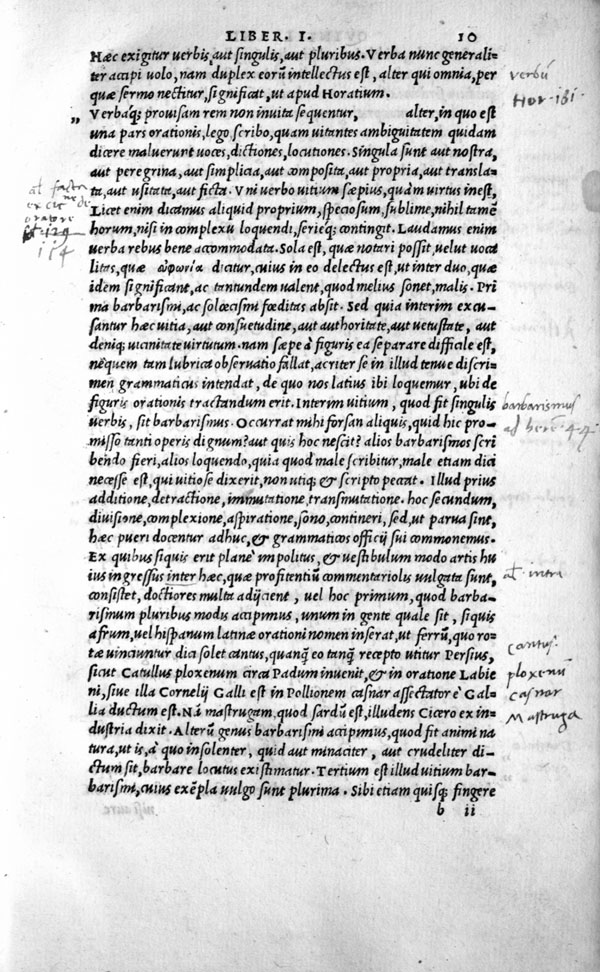 LIBER. I. 10
Hæc exigitur uerbis, aut singulis, aut pluribus. Verba nunc generali-
ter accipi uolo, nam duplex eorũ intellectus est, alter qui omnia, per
quæ sermo nectitur, significat, ut apud Horatium.
„ Verbaq; prouisam rem non inuita sequentur, alter, in quo est
una pars orationis, lego scribo, quam uitantes ambiguitatem quidam
dicere maluerunt uoces, dictiones, locutiones. Singula sunt aut nostra,
aut peregrina, aut simplicia, aut composita, aut propria, aut transla-
ta, aut usitata, aut ficta. Vni uerbo uitium sæpius, quàm uirtus inest,
Licet enim dicamus aliquid proprium, speciosum, sublime, nihil tamẽ
horum, nisi in complexu loquendi, serieq; contingit. Laudamus enim
uerba rebus bene accommodata. Sola est, quæ notari possit, uelut uoca
litas, quæ ἀφωρία dicitur, cuius in eo delectus est, ut inter duo, quæ
idem significant, ac tantundem ualent, quod melius sonet, malis. Pri
ma barbarismi, ac solœcismi fœditas absit. Sed quia interim excu-
santur hæc uitia, aut consuetudine, aut authoritate, aut uetustate, aut
deniq; uicinitate uirtutum. nam sæpe à figuris ea separare difficile est,
nequem tam lubrica obseruatio fallat, acriter se in illud tenue discri-
men grammaticus intendat, de quo nos latius ibi loquemur, ubi de
figuris orationis tractandum erit. Interim uitium, quod fit singulis
uerbis, sit barbarismus. Occurrat mihi forsan aliquis, quid hic pro-
misso tanti operis dignum? aut quis hoc nescit? alios barbarismos scri
bendo fieri, alios loquendo, quia quod male scribitur, male etiam dici
necesse est, qui uitiose dixerit, non utiq; & scripto peccat. Illud prius
additione, detractione, immutatione, transmutatione. hoc secundum,
diuisione, complexione, aspiratione, sono, contineri, sed, ut parua sint,
hæc pueri docentur adhuc, & grammaticos officij sui commonemus.
Ex quibus siquis erit planè impolitus, & uestibulum modo artis hu
ius ingressus inter hæc, quæ profitentiũ commentariolis uulgata sunt,
consistet, doctiores multa adijcient, uel hoc primum, quod barba-
rismum pluribus modis accipimus, unum in gente quale sit, siquis
afrum, uel hispanum latinæ orationi nomen inserat, ut ferrũ, quo ro-
tæ uinciuntur dici solet cantus, quanq̃ eo tanq̃ recepto utitur Persius,
sicut Catullus ploxenum circa Padum inuenit, & in oratione Labie
ni, siue illa Cornelij Galli est in Pollionem casnar assectator è Gal-
lia ductum est. Nã mastrugam, quod sardũ est, illudens Cicero ex in-
dustria dixit. Alterũ genus barbarismi accipimus, quod fit animi na
tura, ut is, à quo insolenter, quid aut minaciter, aut crudeliter di-
ctum sit, barbare locutus existimatur. Tertium est illud uitium bar-
barismi, cuius exẽpla uulgo sunt plurima. Sibi etiam quisq; fingere
b ii
verbũ
Hor. ibi.
barbarismus
ad here. 4. 4
intra
cantus.
ploxenũ
casnar
Mastruga
oratore
154